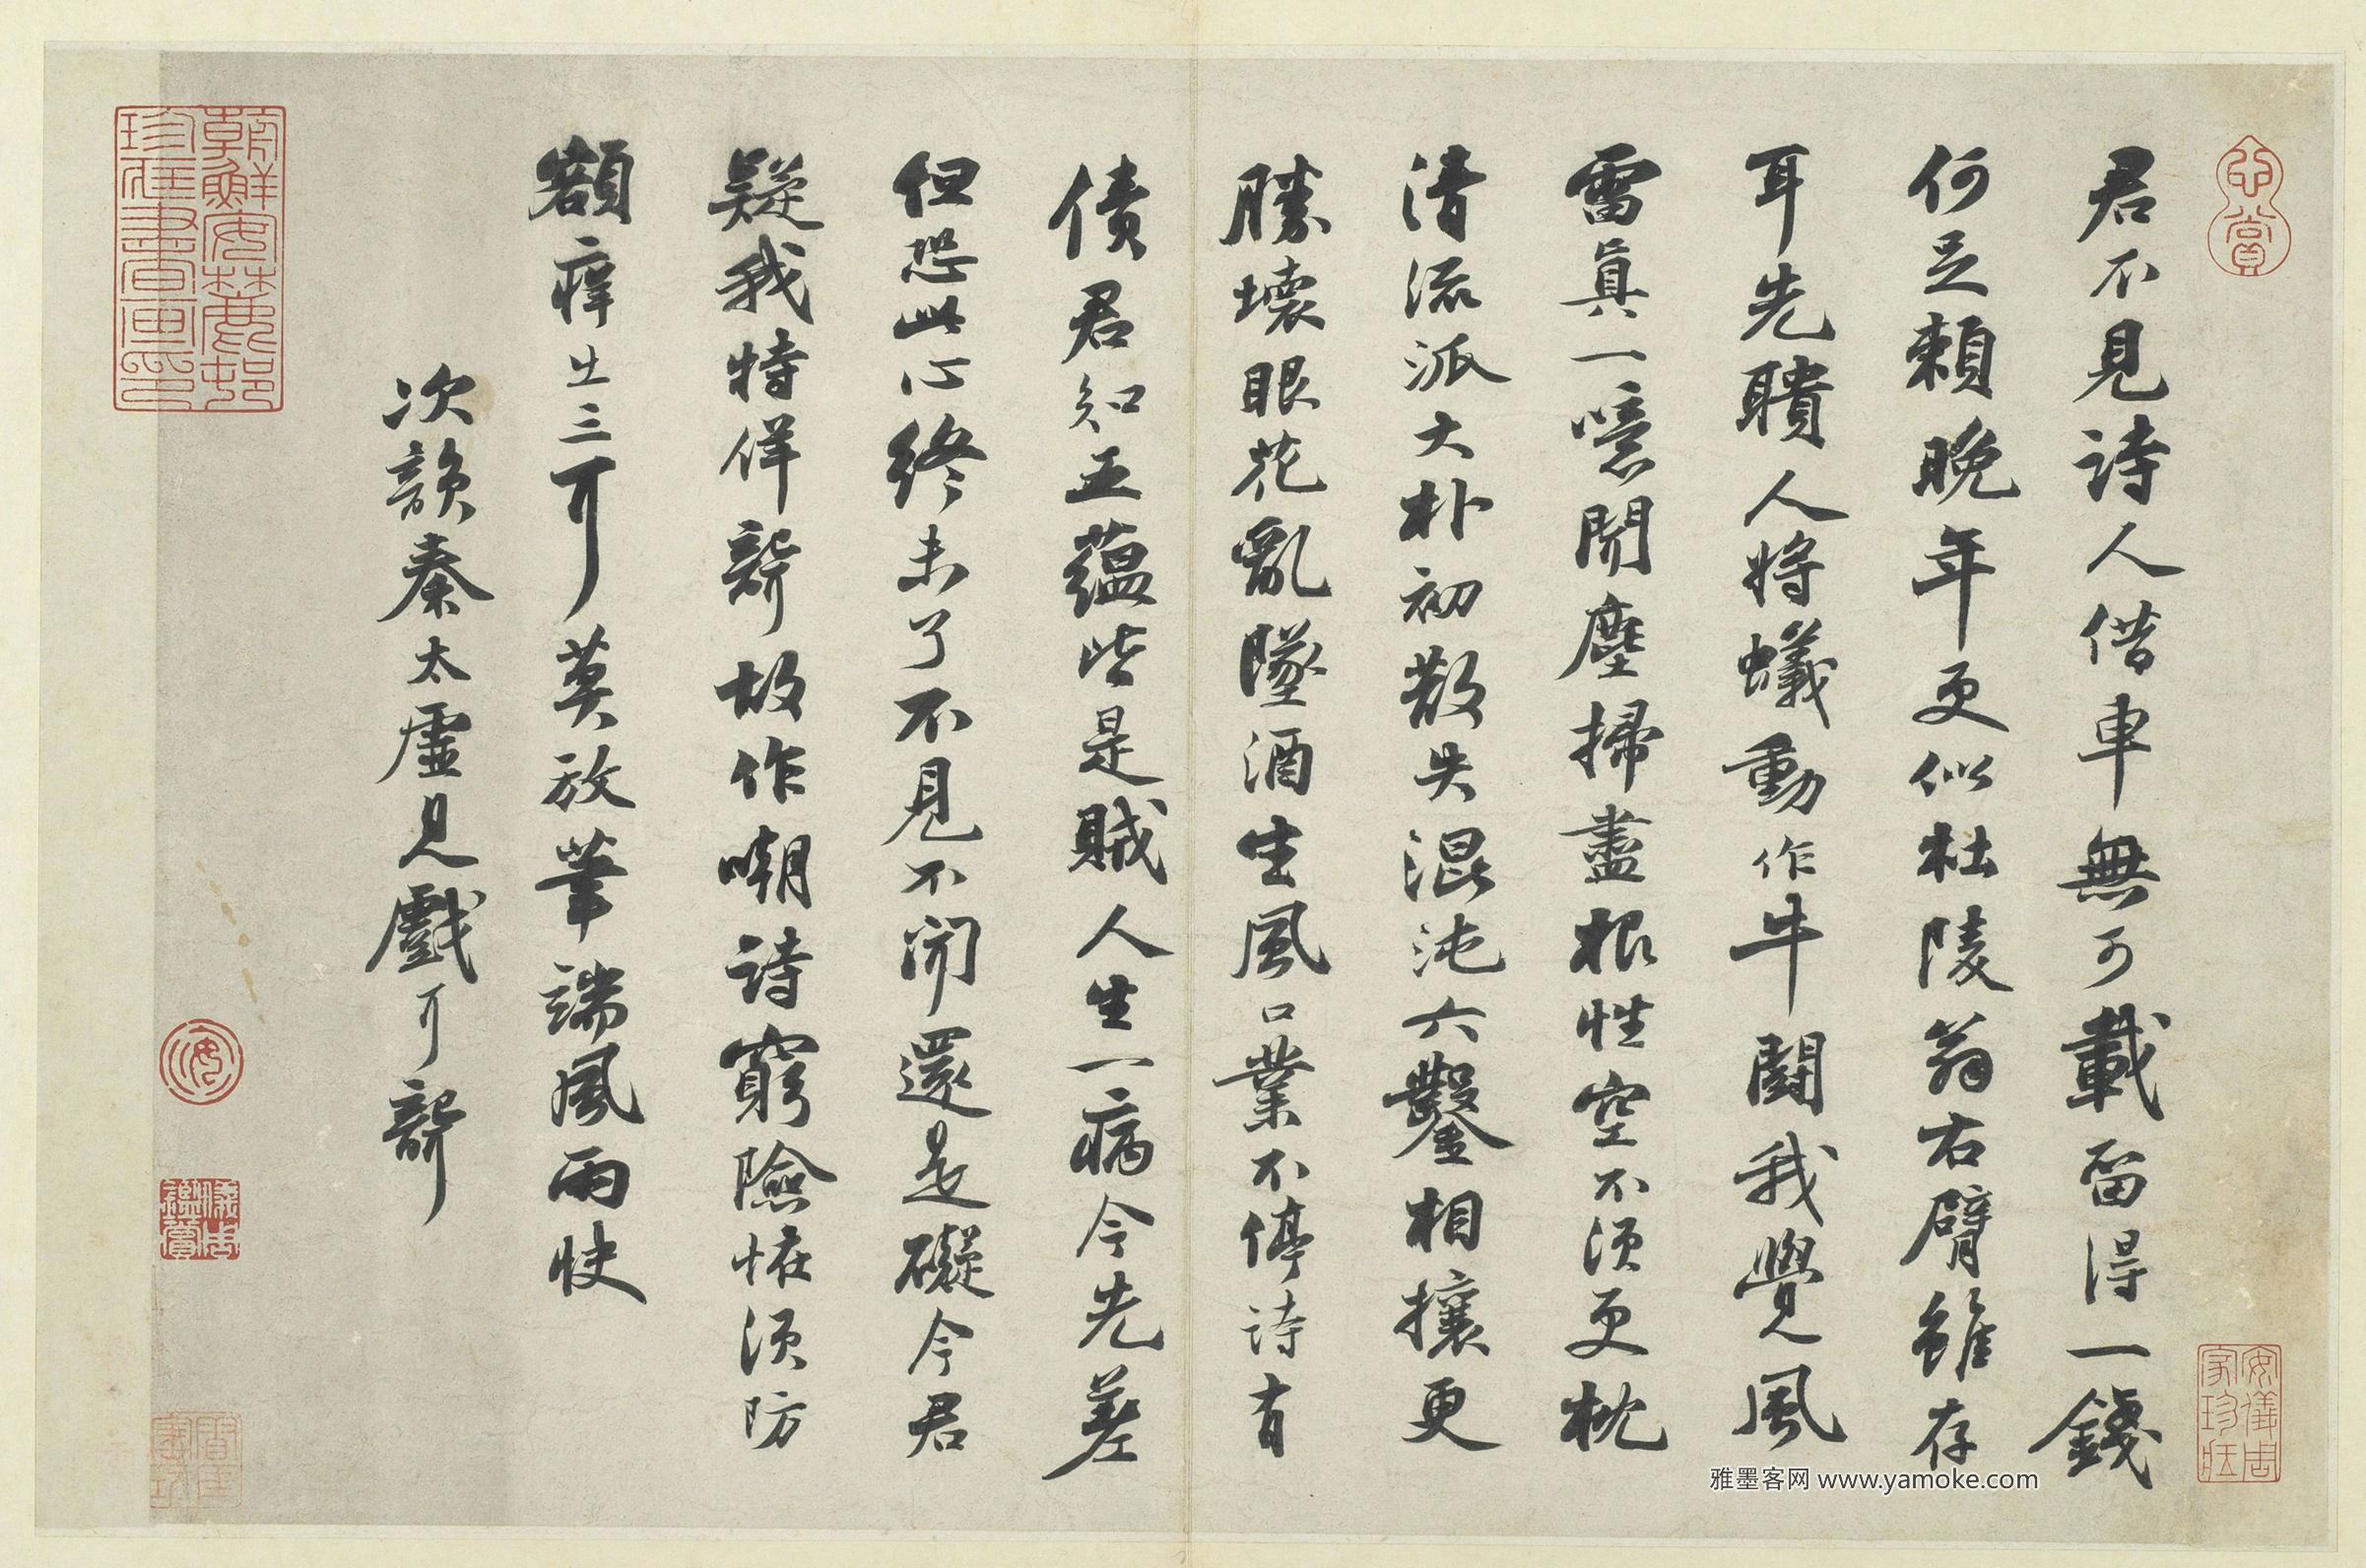 君不見詩人借車無可載留得一錢
何足賴晚年更似杜陵翁右臂雖存
耳先聵人將蟻動作牛鬪我覺風
雷真一噫聞塵掃盡根性空不須更枕
清流派大朴初散失混沌六鑿相攘更
勝壞眼花亂墜酒生風口業不停詩有
債君知五蘊皆是賊人生一病今先差
但恐此心終未了不見不聞還是礙今君
疑我特佯聾故作嘲詩窮險怪須防
額癢出三耳莫放筆端風雨快
次韻秦太虛見戲耳聾
朝鮮安麓邨
珍藏書畫印
心賞
安儀周
家珍藏
儀周
鑑賞
雅墨客网 www.yamoke.com